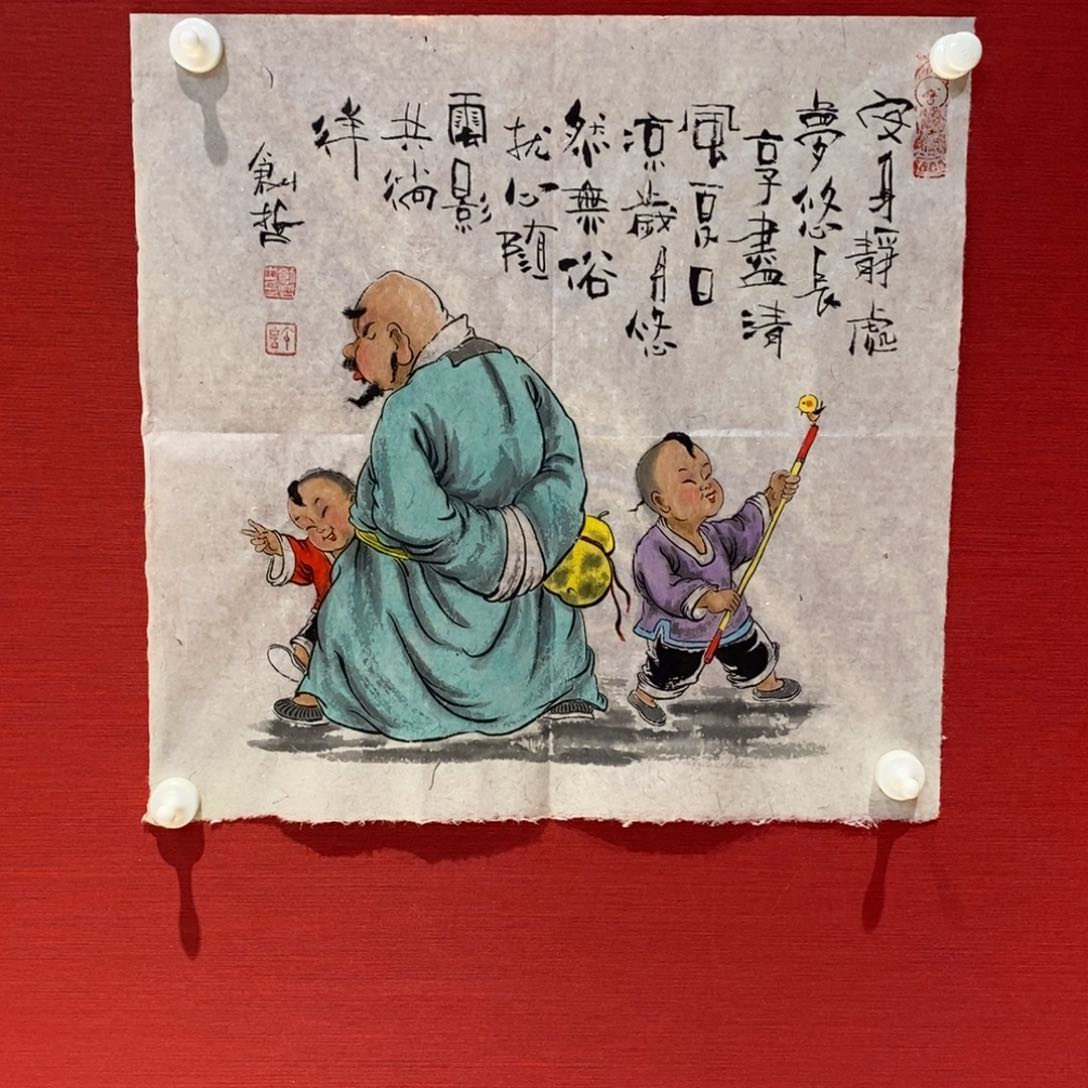 安身靜處
夢悠長
享盡清
風夏日
涼歲月悠
然無俗
扰心随
雲影
共徜
徉
創哲